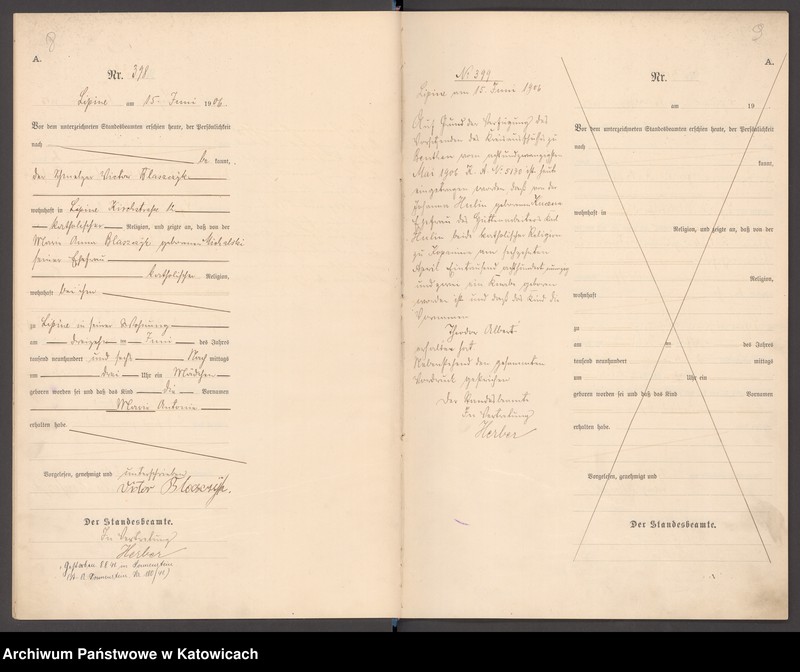 A.
Nr. 398
Lipine am 15. Juni 1906.
Vor dem unterzeichneten Standesbeamten erschien heute, der Persönlichkeit
nach
be kannt,
der Schmelzer Victor Blaszczyk
wohnhaft in Lipine
katholischer Religion, und zeigte an, daß von der
Marie Anna Blaszczyk geborenen
seiner Ehefrau
katholischer Religion,
wohnhaft bei ihm
zu Lipine in seiner Wohnung
am dreizehn ten Juni des Jahres
tausend neunhundert und sechs Nach mittags
um drei Uhr ein Mädchen
geboren worden sei und daß das Kind die Vornamen
Marie Antonie
erhalten habe.
Vorgelesen, genehmigt und unterschrieben
Victor Blaszczyk.
Der Standesbeamte.
In Vertretung
Herber
Gestorben 8.8.41 in Sonnenstein
(St. A. Sonnenstein Nr. /41)
No 399
Lipine am 15. Juni 1906
Auf Grund der Verfügung des
Vorsitzenden des Kreisausschusses zu
Beuthen vom achtundzwanzigsten
Mai 1906 K. A. No ist heute
eingetragen worden, daß von der
Johanna geborenen
Ehefrau des Hüttenarbeiters
beide katholischer Religion
zu am sechzehnten
April Eintausend achthundert
und ein Knabe geboren
worden ist und daß das Kind die
Vornamen
Theodor Albert
erhalten hat
Nebenstehend den gesammten
Vordruck gestrichen
Der Standesbeamte
In Vertretung
Herber
A.
Nr.
am 19
Vor dem unterzeichneten Standesbeamten erschien heute, der Persönlichkeit
nach
kannt,
wohnhaft in
Religion, und zeigte an, daß von der
Religion,
wohnhaft
zu
am ten des Jahres
tausend neunhundert mittags
um Uhr ein
geboren worden sei und daß das Kind Vornamen
erhalten habe.
Vorgelesen, genehmigt und
Der Standesbeamte.
Archiwum Państwowe w Katowicach